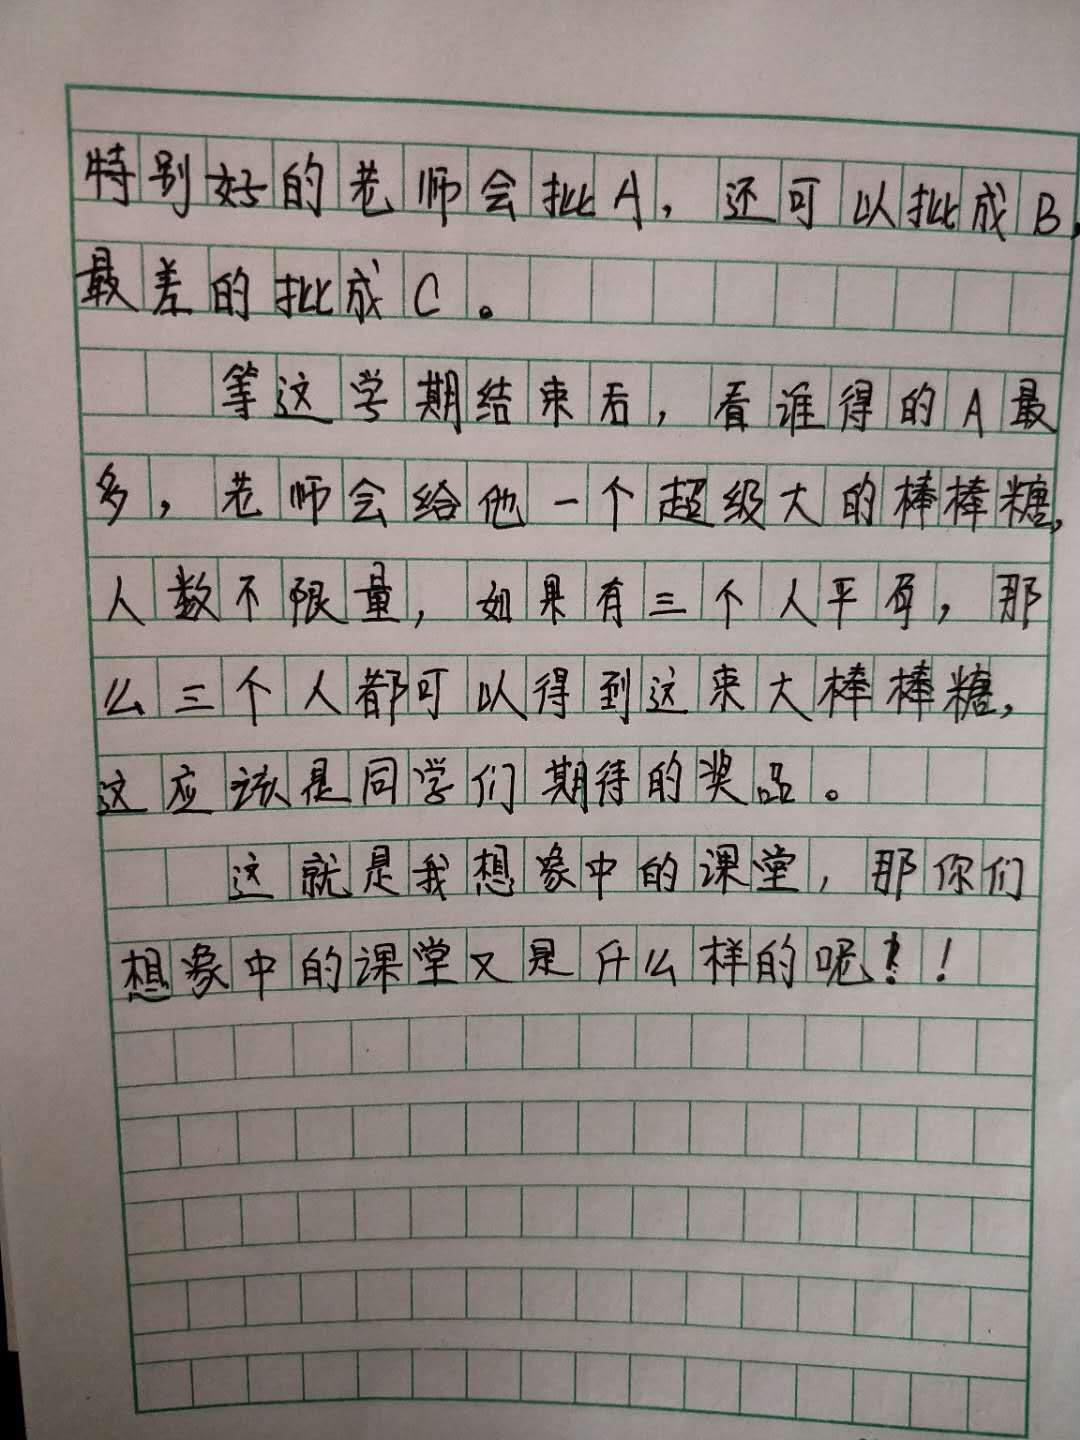 特别好的老师会批A，还可以批成B，
最差的批成C。
等这学期结束后，看谁得的A最
多，老师会给他一个超级大的棒棒糖，
人数不限量，如果有三个人平，那
么三个人都可以得到这束大棒棒糖，
这应该是同学们期待的奖品。
这就是我想象中的课堂，那你们
想象中的课堂又是什么样的呢！！